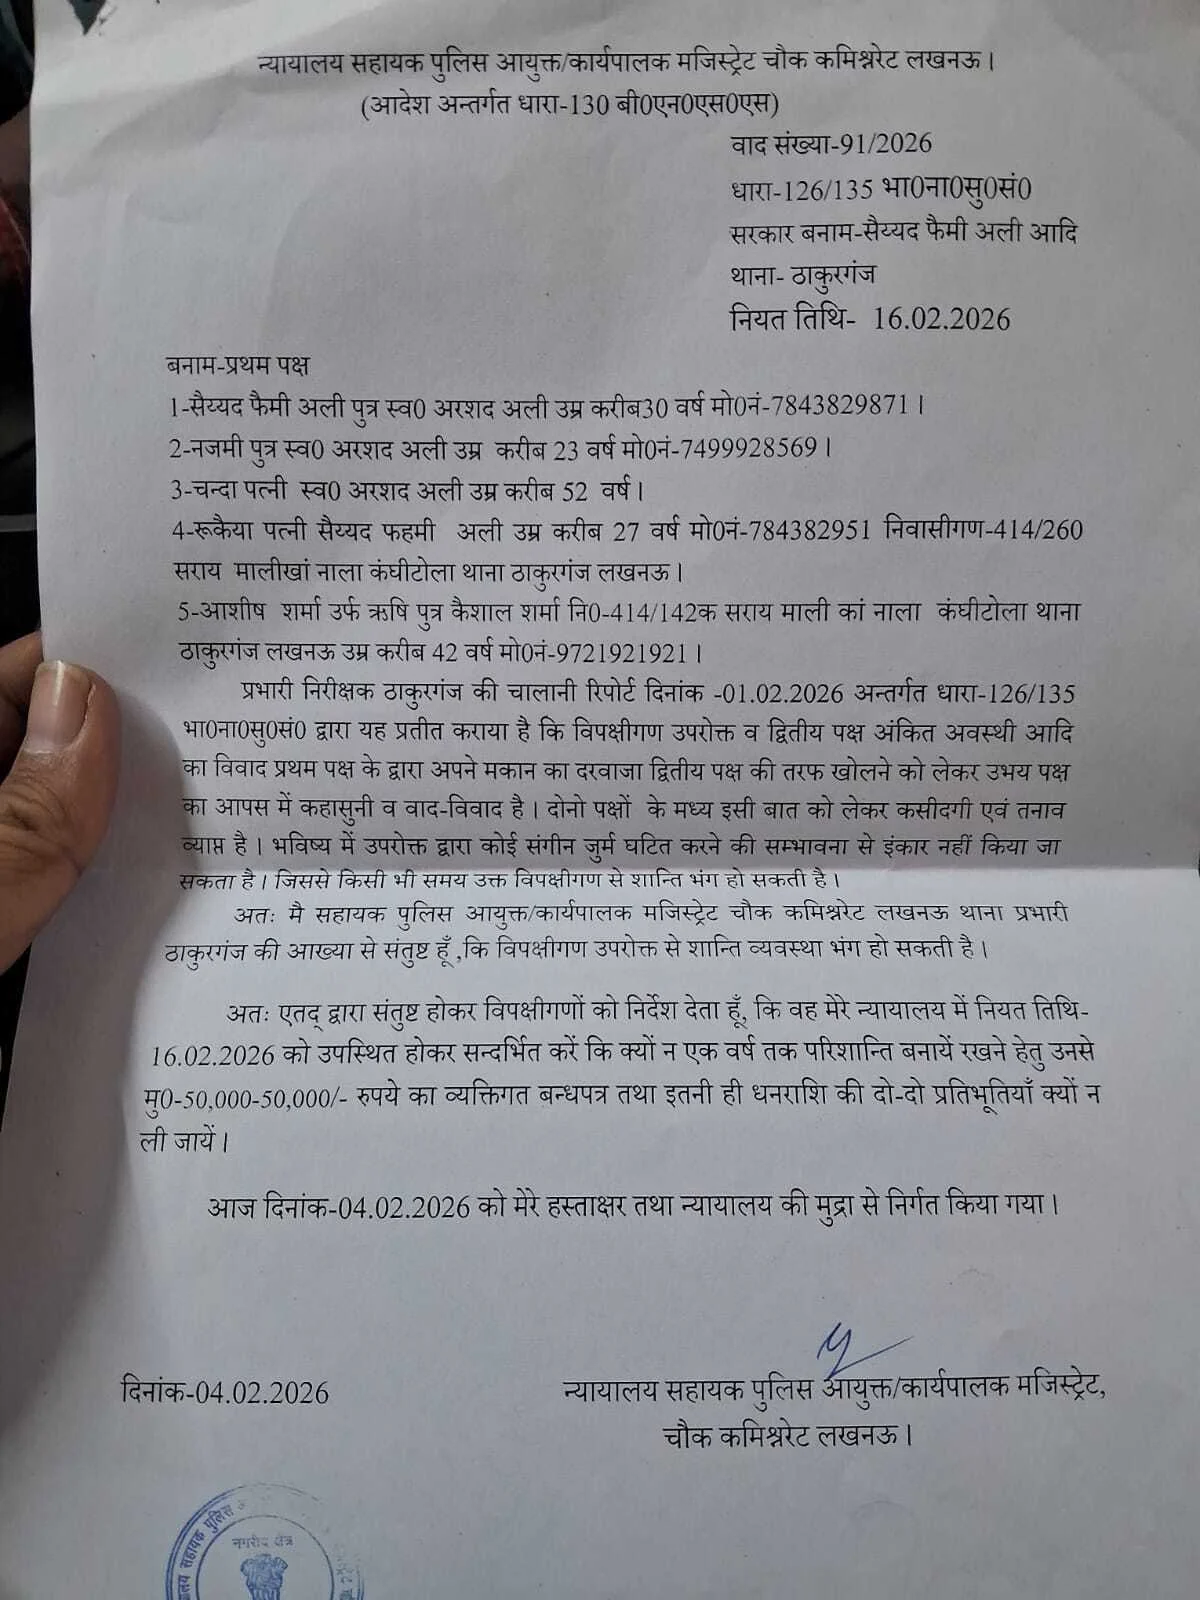 न्यायालय सहायक पुलिस आयुक्त/कार्यपालक मजिस्ट्रेट चौक कमिश्नरेट लखनऊ।
(आदेश अन्तर्गत धारा-130 बी0एन0एस0एस)
वाद संख्या-91/2026
धारा-126/135 भा0ना0सु0सं0
सरकार बनाम-सैय्यद फैमी अली आदि
थाना- ठाकुरगंज
नियत तिथि- 16.02.2026
बनाम-प्रथम पक्ष
1-सैय्यद फैमी अली पुत्र स्व0 अरशद अली उम्र करीब30 वर्ष मो0नं-7843829871।
2-नजमी पुत्र स्व0 अरशद अली उम्र करीब 23 वर्ष मो0नं-7499928569।
3-चन्दा पत्नी स्व0 अरशद अली उम्र करीब 52 वर्ष।
4-रूकैया पत्नी सैय्यद फहमी अली उम्र करीब 27 वर्ष मो0नं-784382951 निवासीगण-414/260
सराय मालीखां नाला कंघीटोला थाना ठाकुरगंज लखनऊ।
5-आशीष शर्मा उर्फ ऋषि पुत्र कैशाल शर्मा नि0-414/142क सराय माली कां नाला कंघीटोला थाना
ठाकुरगंज लखनऊ उम्र करीब 42 वर्ष मो0नं-9721921921।
प्रभारी निरीक्षक ठाकुरगंज की चालानी रिपोर्ट दिनांक -01.02.2026 अन्तर्गत धारा-126/135
भा0ना0सु0सं0 द्वारा यह प्रतीत कराया है कि विपक्षीगण उपरोक्त व द्वितीय पक्ष अंकित अवस्थी आदि
का विवाद प्रथम पक्ष के द्वारा अपने मकान का दरवाजा द्वितीय पक्ष की तरफ खोलने को लेकर उभय पक्ष
का आपस में कहासुनी व वाद-विवाद है। दोनो पक्षों के मध्य इसी बात को लेकर कसीदगी एवं तनाव
व्याप्त है। भविष्य में उपरोक्त द्वारा कोई संगीन जुर्म घटित करने की सम्भावना से इंकार नहीं किया जा
सकता है। जिससे किसी भी समय उक्त विपक्षीगण से शान्ति भंग हो सकती है।
अतः मै सहायक पुलिस आयुक्त/कार्यपालक मजिस्ट्रेट चौक कमिश्नरेट लखनऊ थाना प्रभारी
ठाकुरगंज की आख्या से संतुष्ट हूँ ,कि विपक्षीगण उपरोक्त से शान्ति व्यवस्था भंग हो सकती है।
अतः एतद् द्वारा संतुष्ट होकर विपक्षीगणों को निर्देश देता हूँ, कि वह मेरे न्यायालय में नियत तिथि-
16.02.2026 को उपस्थित होकर सन्दर्भित करें कि क्यों न एक वर्ष तक परिशान्ति बनायें रखने हेतु उनसे
मु0-50,000-50,000/- रुपये का व्यक्तिगत बन्धपत्र तथा इतनी ही धनराशि की दो-दो प्रतिभूतियाँ क्यों न
ली जायें।
आज दिनांक-04.02.2026 को मेरे हस्ताक्षर तथा न्यायालय की मुद्रा से निर्गत किया गया।
दिनांक-04.02.2026
न्यायालय सहायक पुलिस आयुक्त/कार्यपालक मजिस्ट्रेट,
चौक कमिश्नरेट लखनऊ।
सहायक पुलिस
नगरीय क्षेत्र